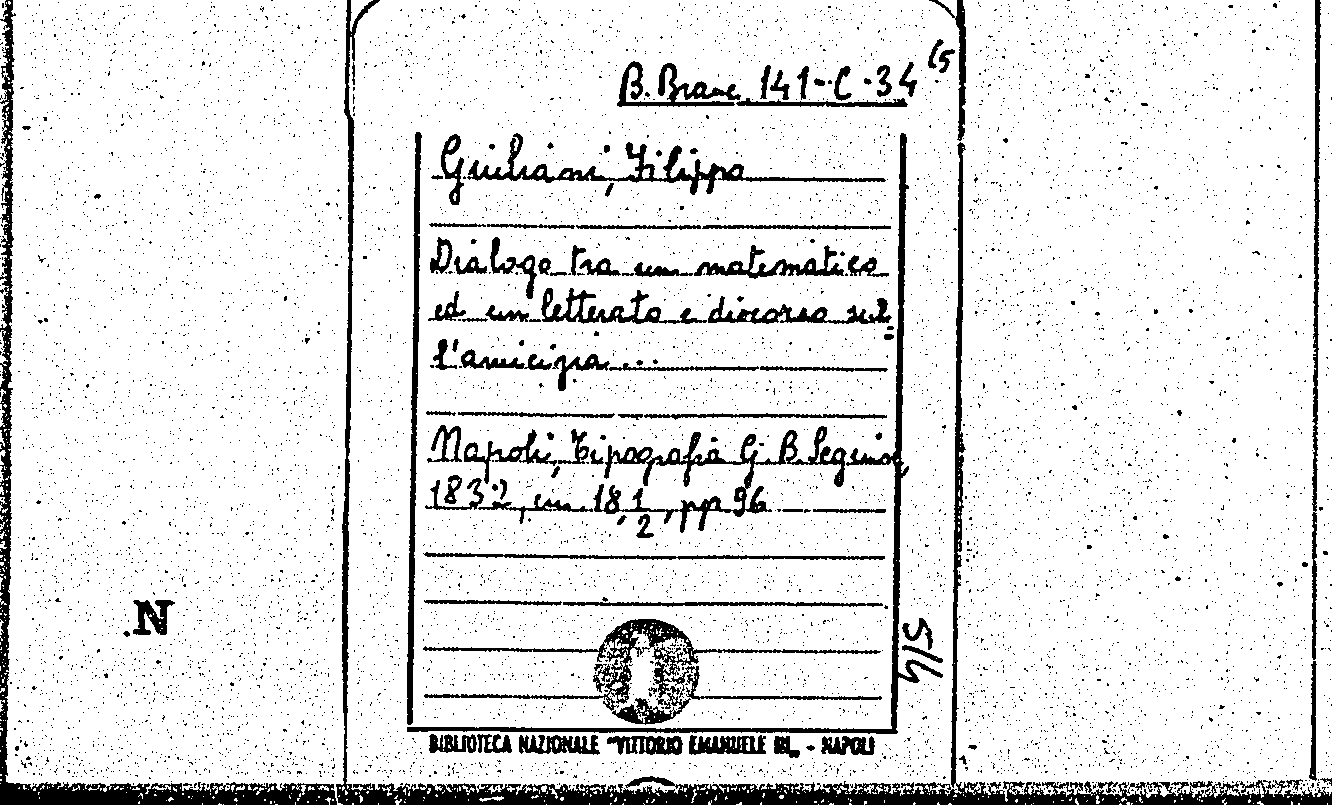 B. Branc. 141-C-34 (5
Giuliani, Filippo
Dialogo tra un matematico
ed un letterato e discorso sul=
l'amicizia...
Napoli, Tipografia G. B. Seguin,
1832, in. 18, 1/2, pp 96
N
5/4
BIBLIOTECA NAZIONALE "VITTORIO EMANUELE III" - NAPOLI